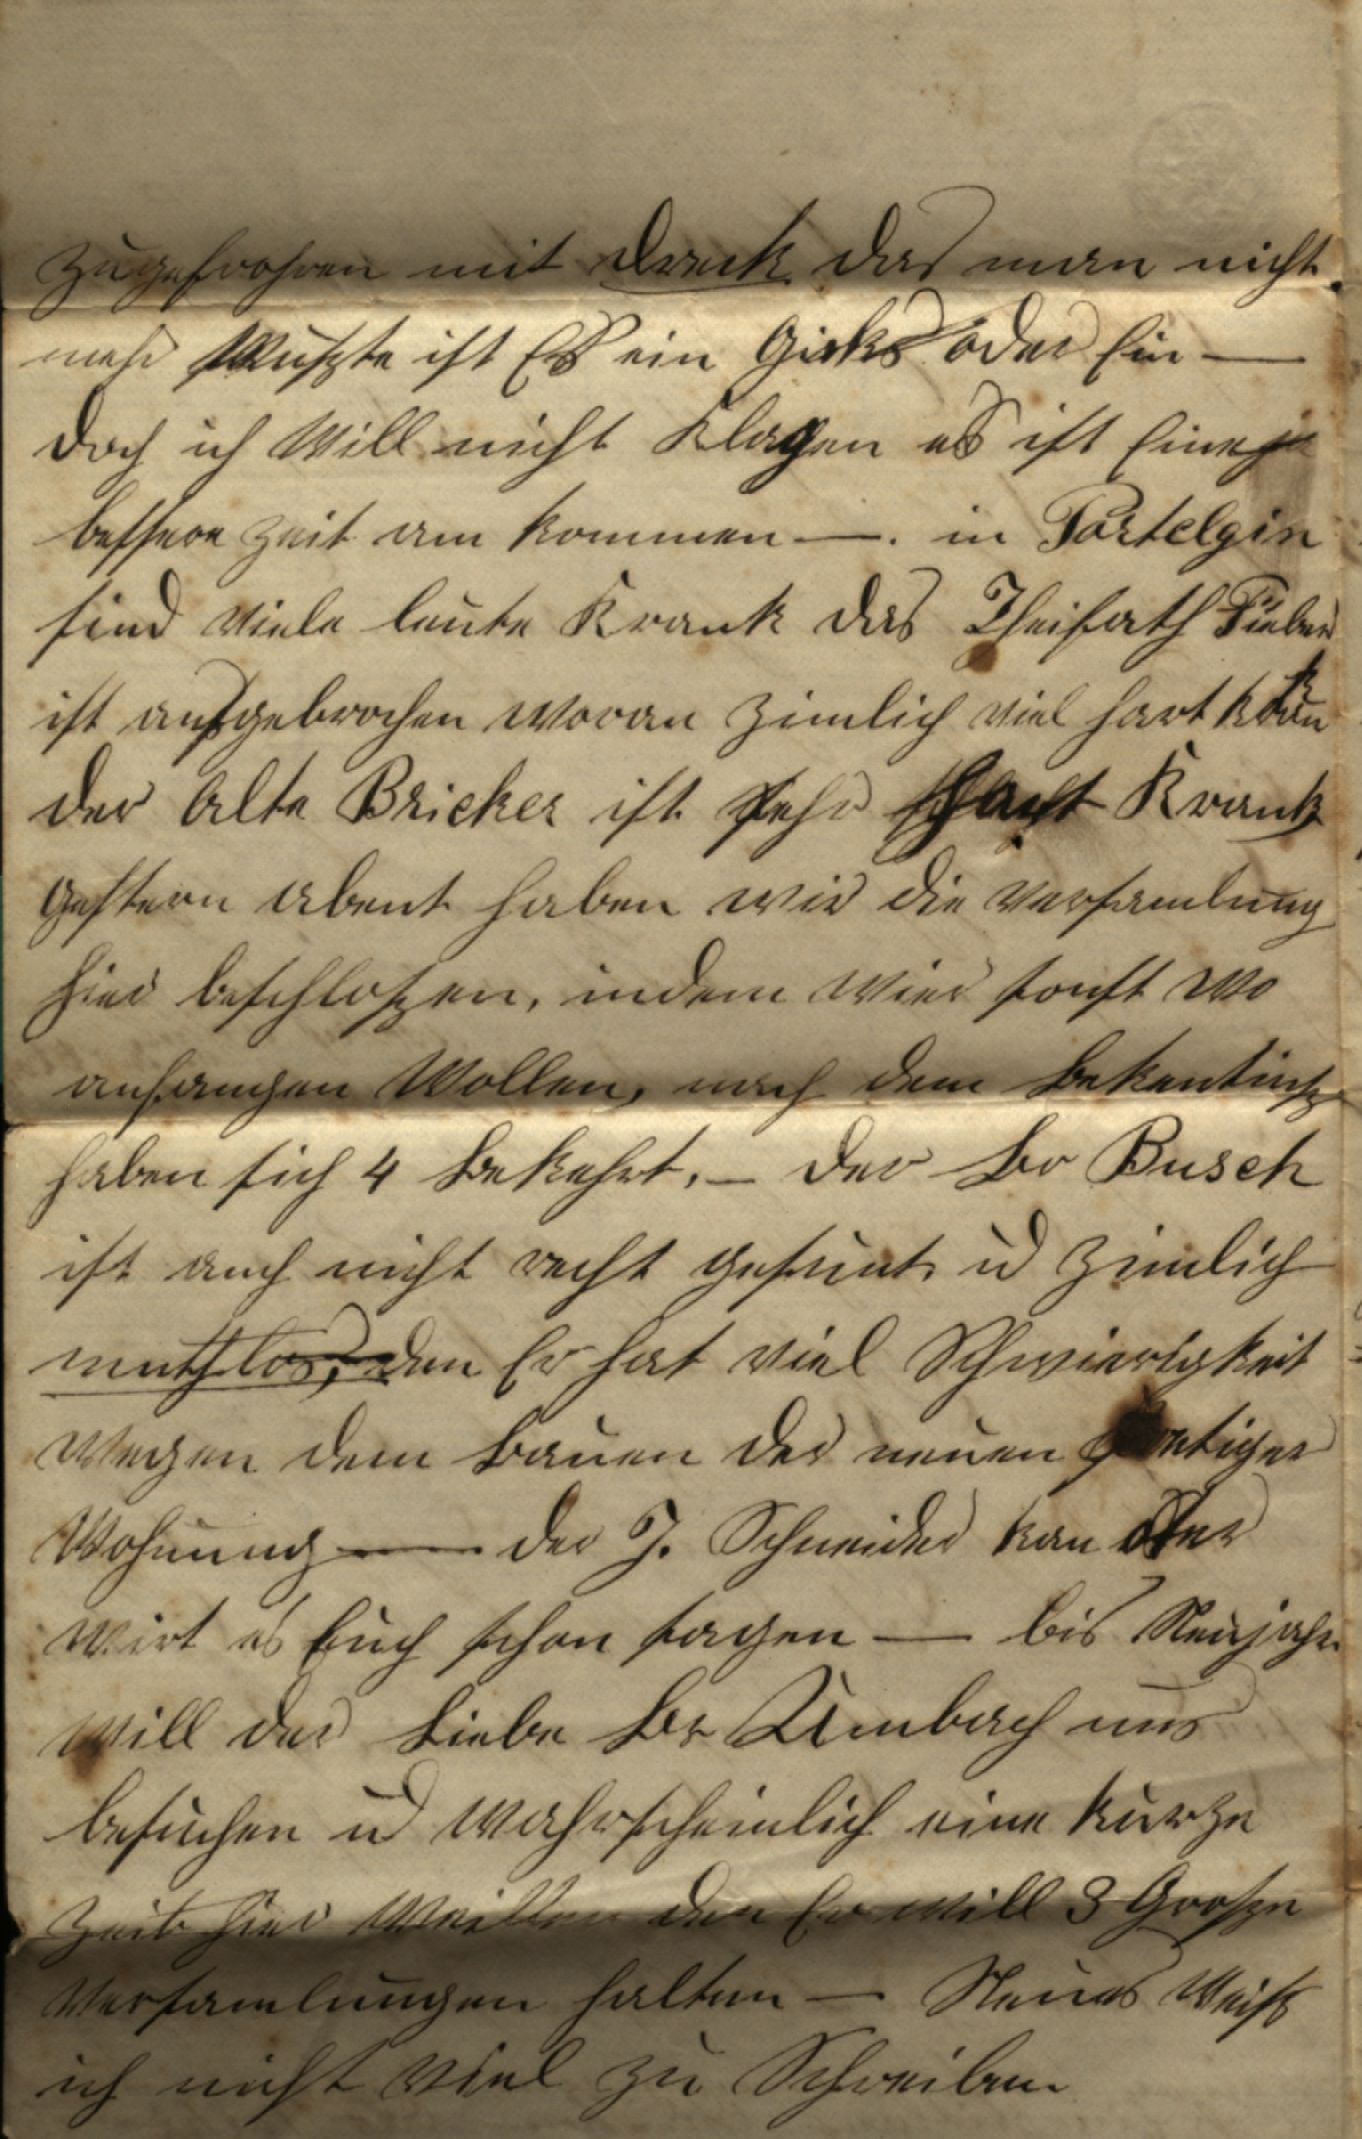 zugefrohren mit Dreck das man nicht
mehr Wuszte ist Es ein Girks oder Ein —
doch ich Will nicht Klagen es ist Eine
bessere zeit am kommen —. in Portelgin
sind viele leute Krank das Theifath Fieber
ist ausgebrochen woran zimlich viel hart krank
der Alte Bricker ist sehr Krank
gestern abent haben wir die versamlung
hier beschloszen, indem wier sonst wo
anfangen Wollen, nach dem Bekentnisz
haben sich 4 Bekehrt. — der Br Busch
ist auch nicht recht gesunt ud zimlich
muthlos, den Er hat viel Schwierigkeit
wegen dem Bauen der neuen
Wohnung — der J. Schneider kan oder
wirt es Euch schon sagen — bis Neujahr
will der Liebe Br Umbach uns
besuchen ud wahrscheinlich eine kurze
zeit hier Weillen den Er will 3 Grosze
versamlungen halten — Neues Weiss
ich nicht viel zu Schreiben